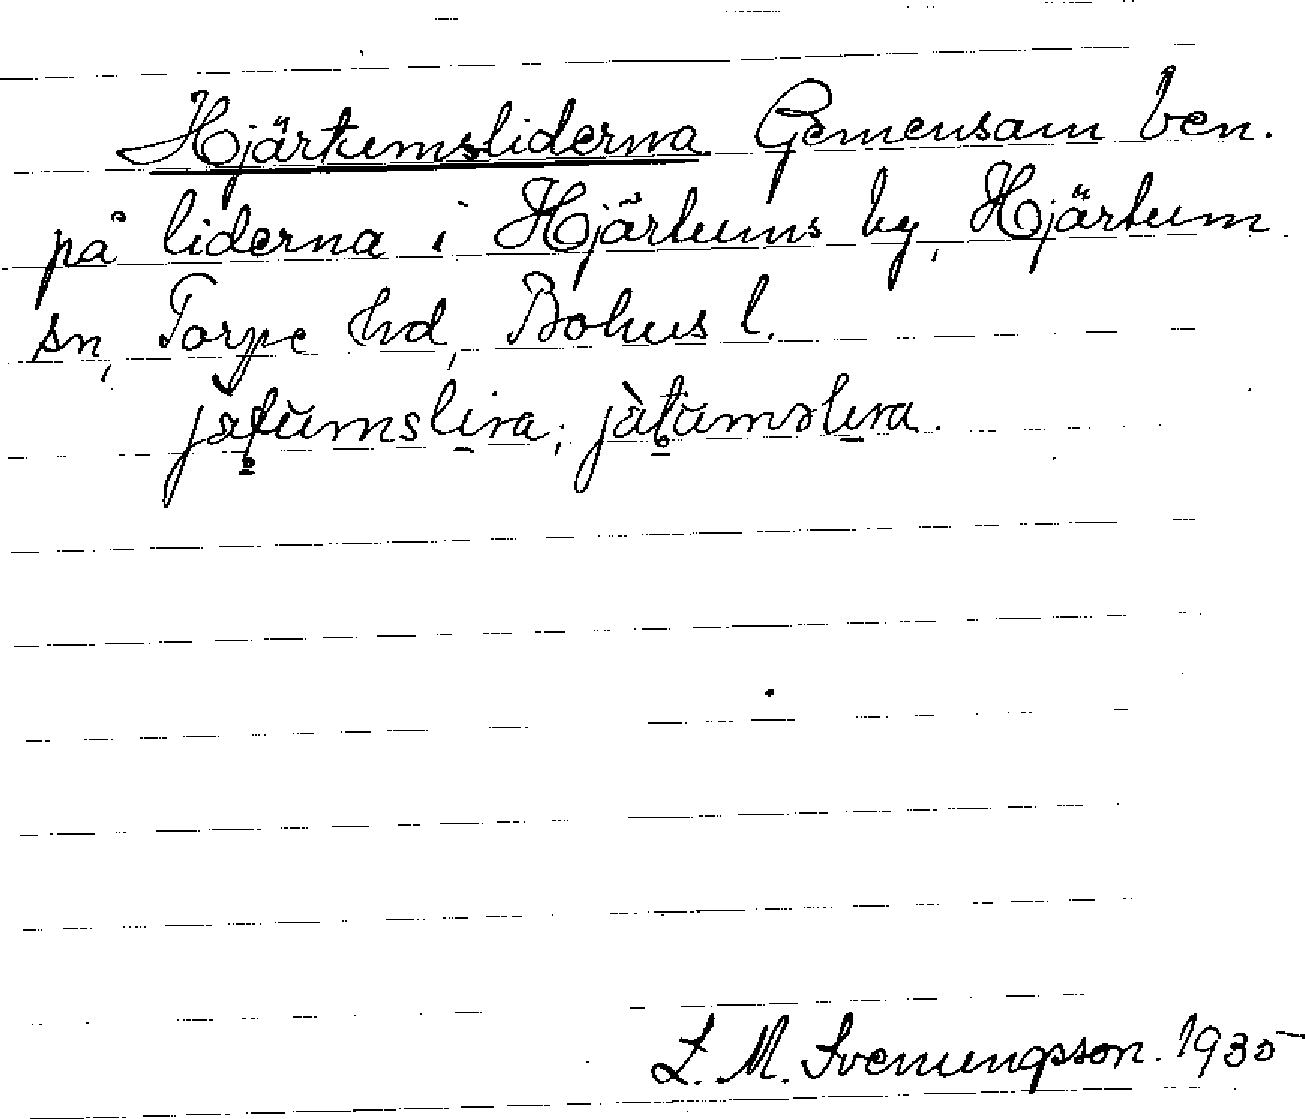 Hjärtumsliderna Gemensam ben.
på liderna i Hjärtums by, Hjärtum
sn, Torpe hd, Bohus l.
L. M. Svenungsson. 1935